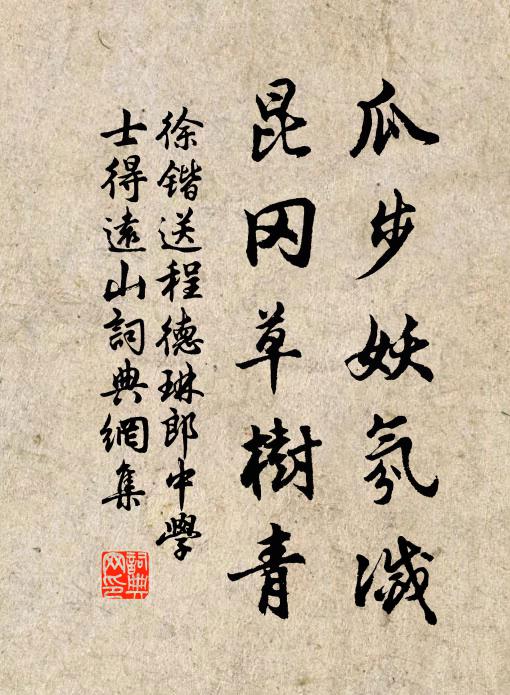 瓜步妖氛滅
昆冈草樹青
徐鍇送程德琳郎中學
士得遠山詞典網集
詞典網印